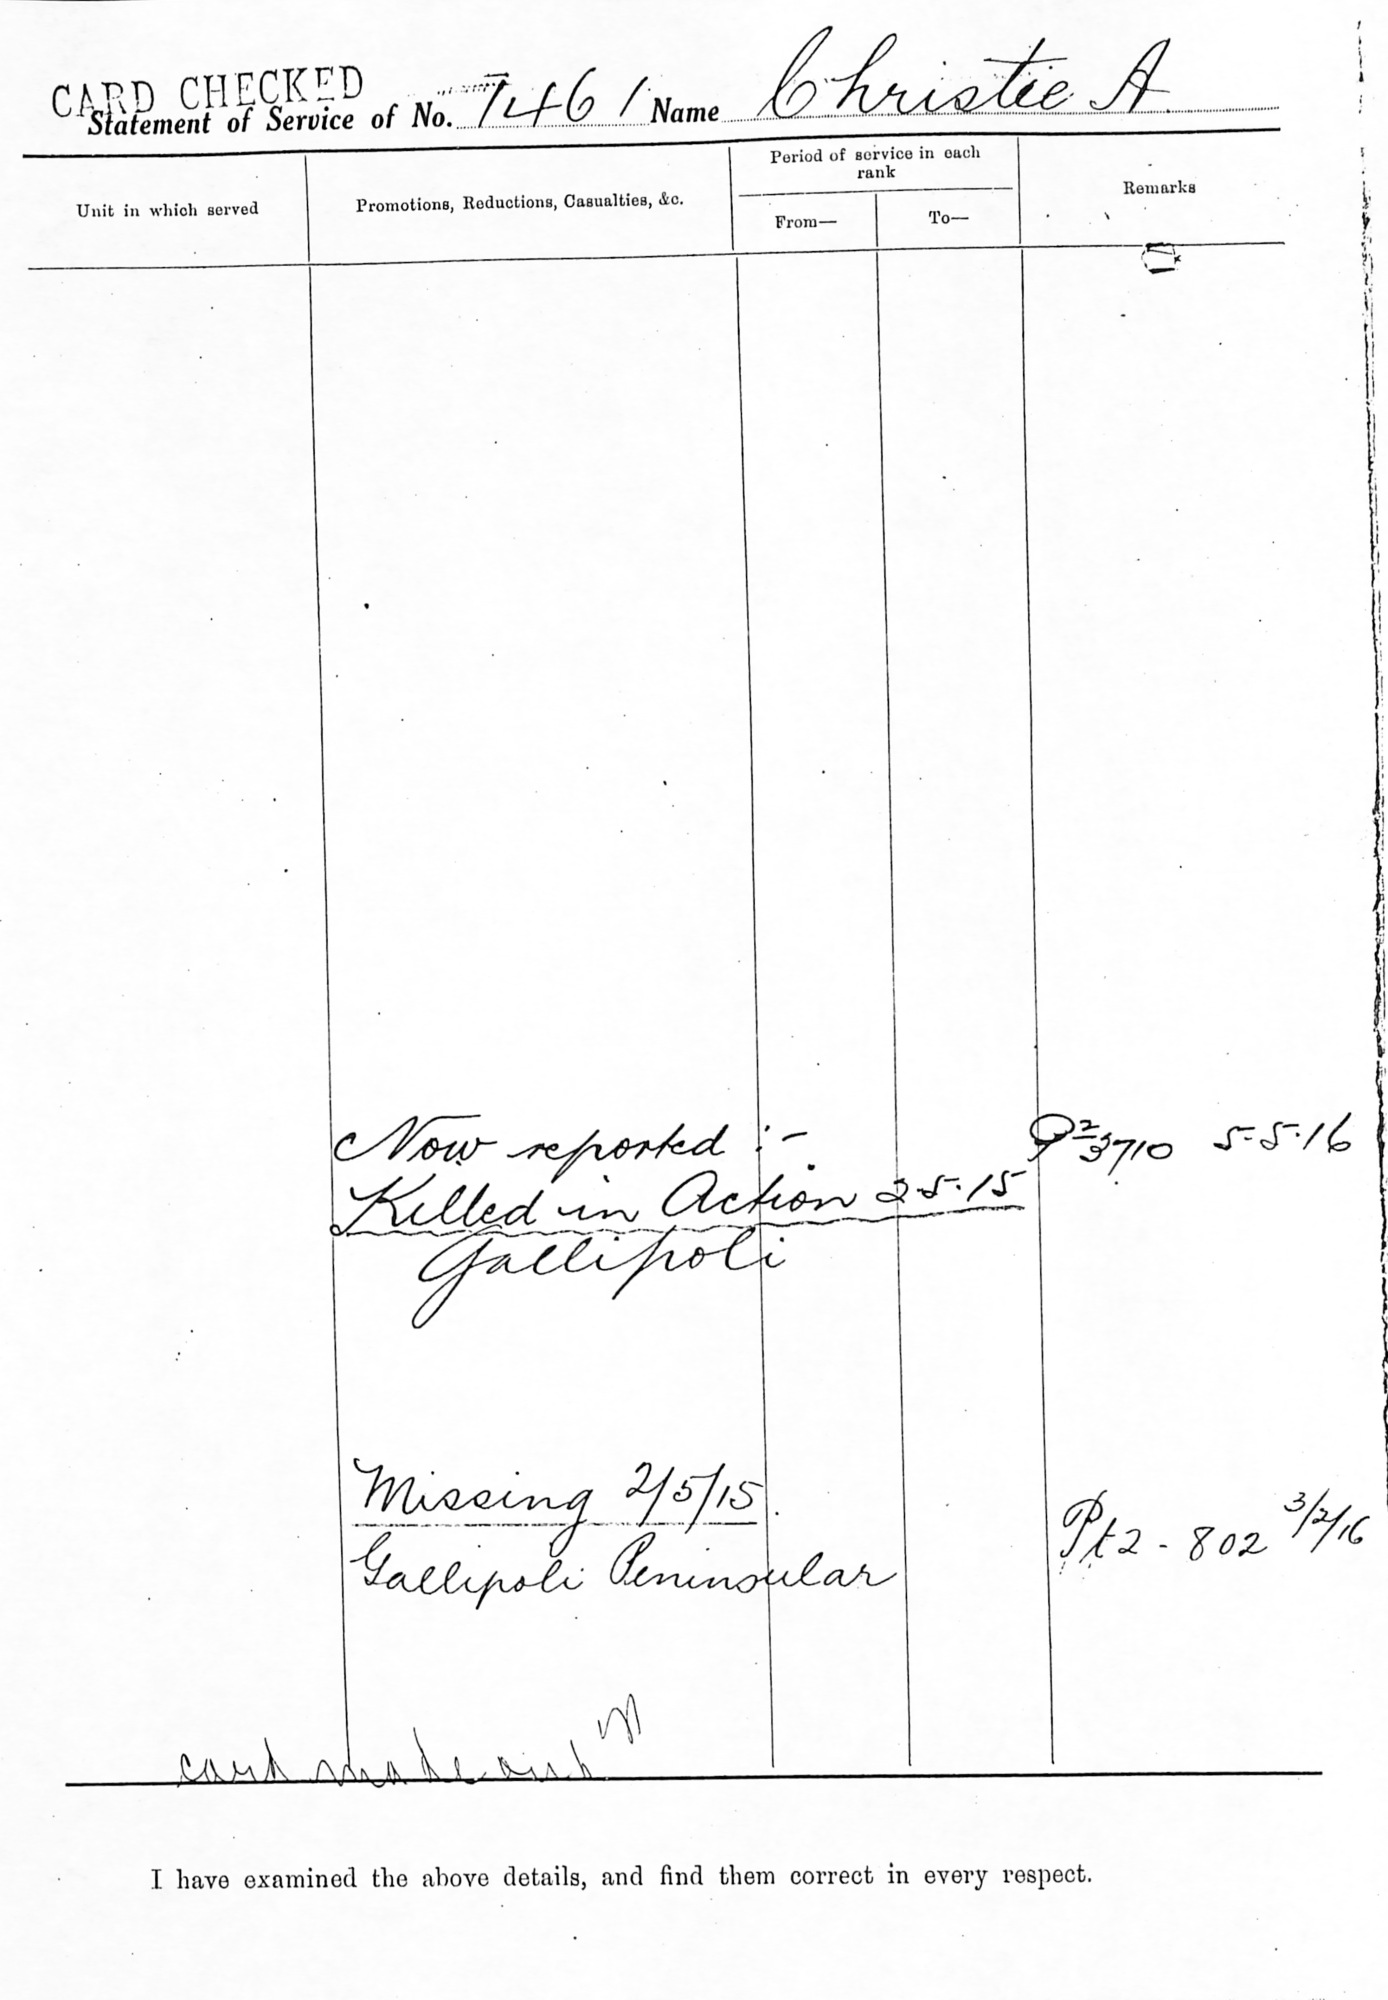 CARD CHECKED
Statement of Service of No. 1461 Name Christie A.
Unit in which served
Promotions, Reductions, Casualties, &c.
Period of service in each
rank
From—
To—
Remarks
Now reported :-
P2 3710 5-5-16
Killed in Action 2-5-15
Gallipoli
Missing 2/5/15.
Pt 2 - 802 3/2/16
Gallipoli Peninsular
card made out
I have examined the above details, and find them correct in every respect.